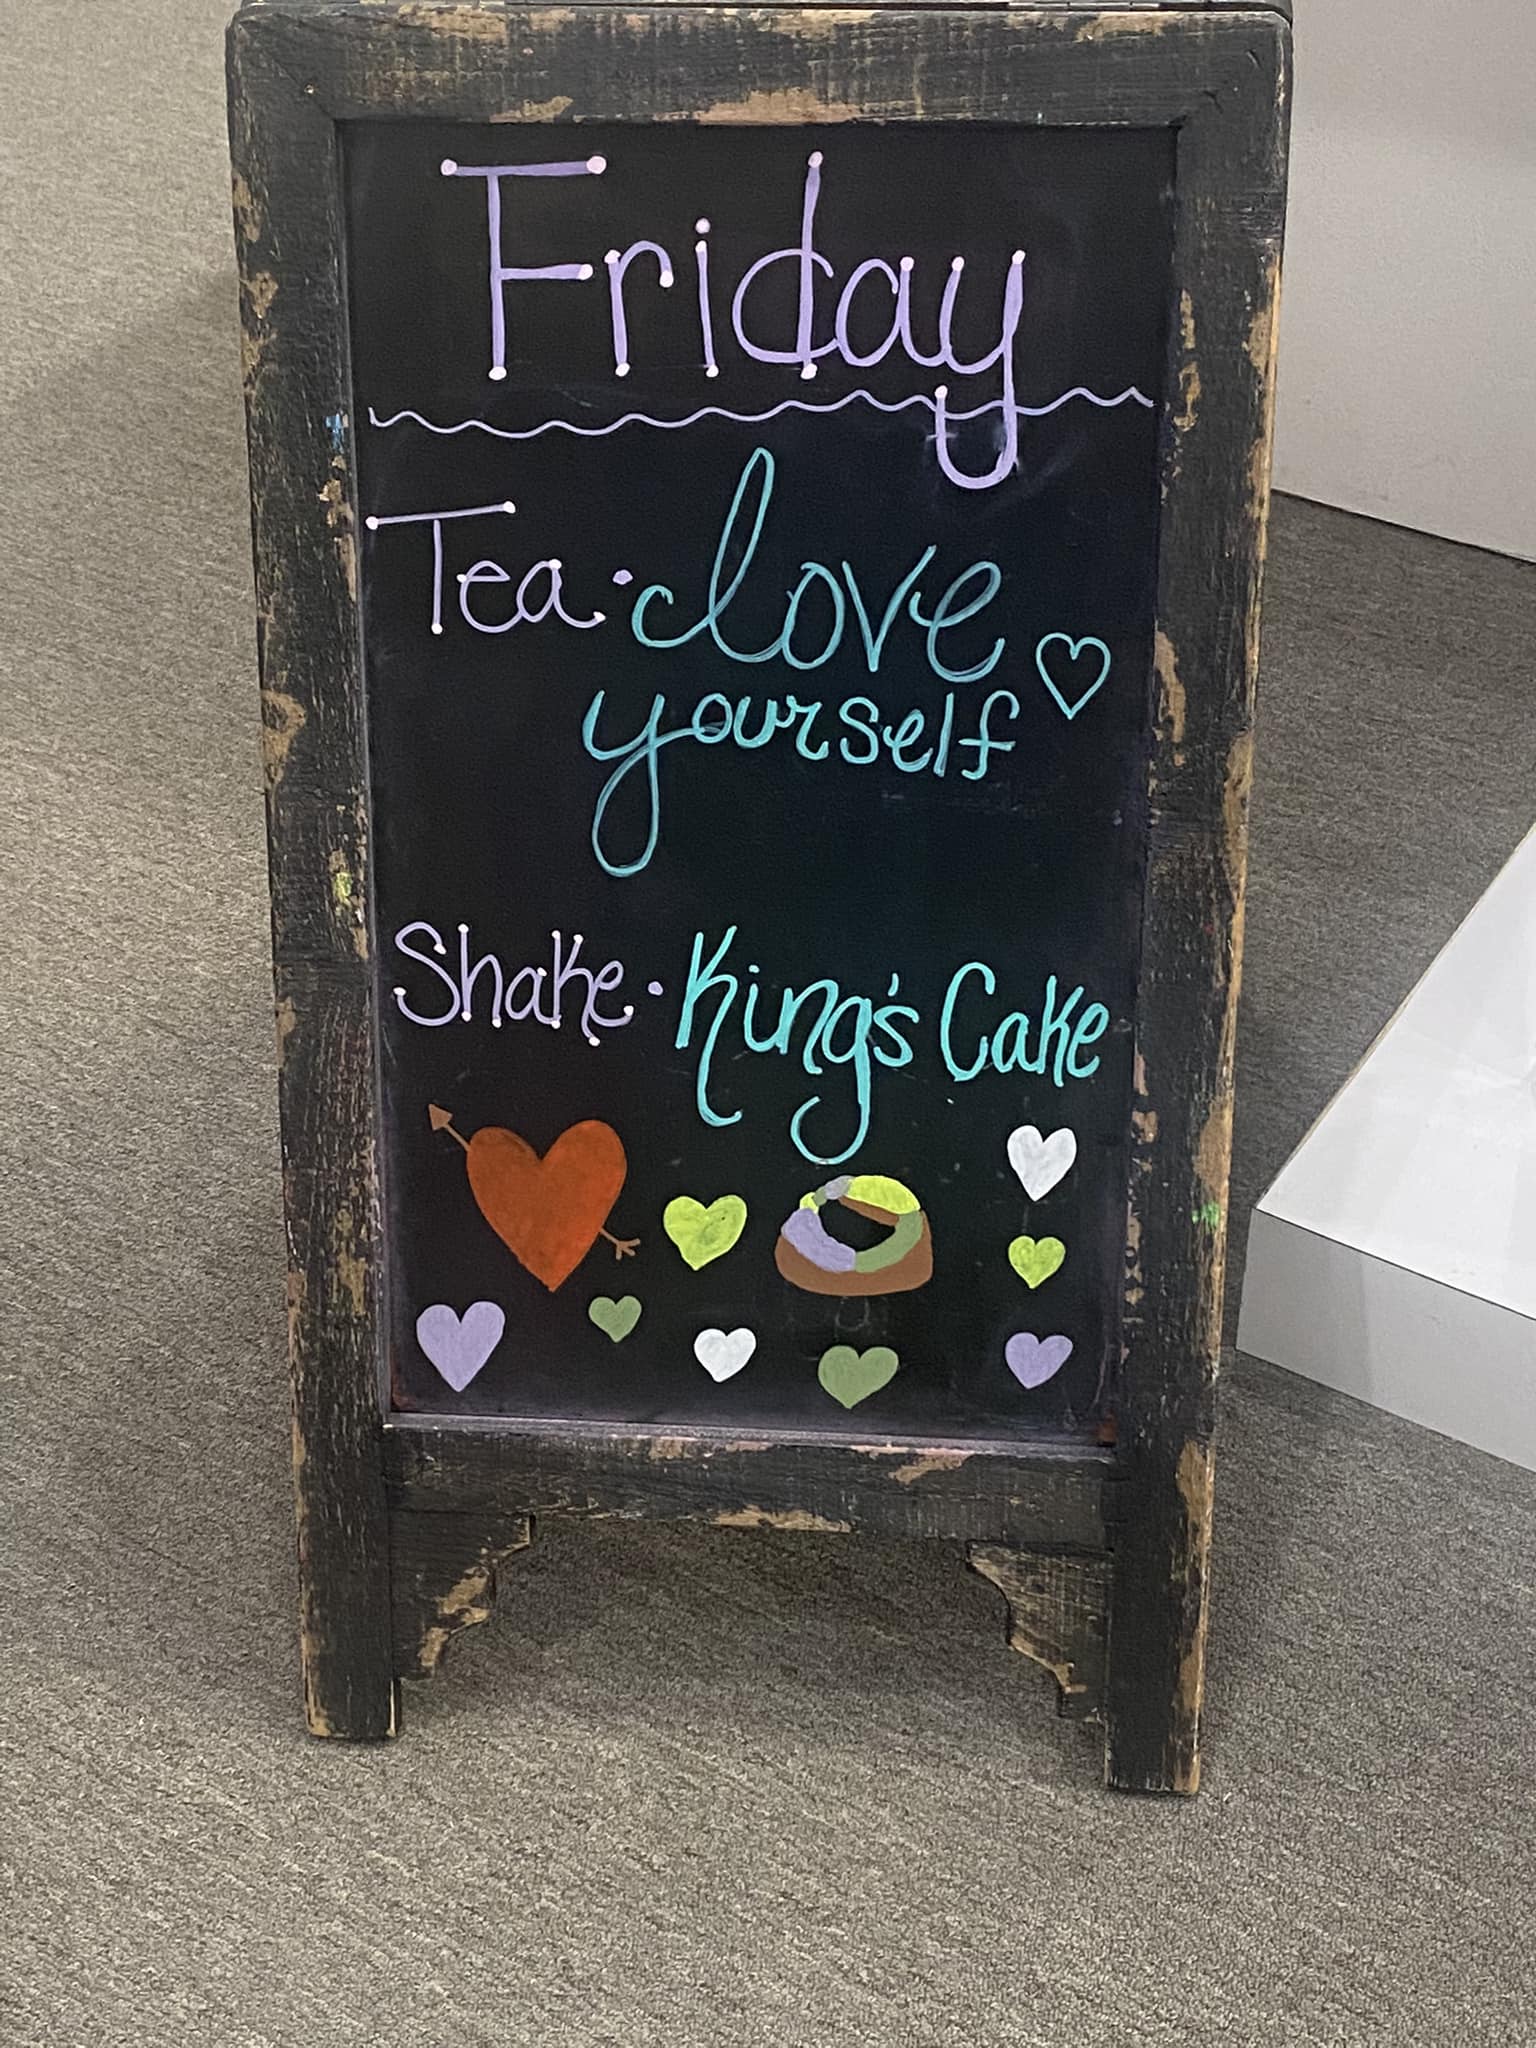 Friday
Tea • love
yourself
Shake • King's Cake